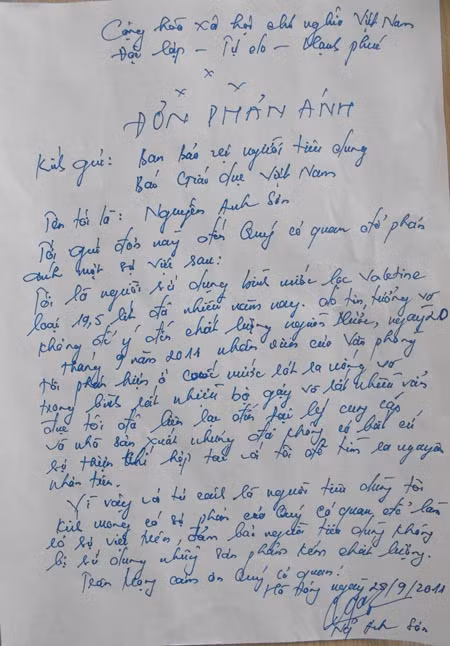 Cộng hòa xã hội chủ nghĩa Việt Nam
Độc lập - Tự do - Hạnh phúc
x x x
ĐƠN PHẢN ÁNH
Kính gửi: Ban bảo vệ người tiêu dùng
Báo Giáo dục Việt Nam
Tên tôi là: Nguyễn Anh Sơn
Tôi gửi đơn này đến Quý cơ quan để phản
ánh một sự việc sau:
Tôi là người sử dụng bình nước lọc Valetine
loại 19,5 lít đã nhiều năm nay. do tin tưởng và
không để ý đến chất lượng nguồn nước, ngày 20
tháng 9 năm 2011 nhân viên của Văn phòng
tôi phát hiện ở nước rót ra uống và
trong bình rất nhiều bọ gậy và rất nhiều vẩn
đục tôi đã liên lạc đến Đại lý cung cấp
và nhà sản xuất nhưng đã không có bất cứ
sự thiện chí hợp tác và tôi để tìm ra nguyên
nhân trên.
Vì vậy và tư cách là người tiêu dùng tôi
kính mong có sự phản của Quý cơ quan để làm
rõ sự việc trên, đảm bảo người tiêu dùng không
bị sử dụng những sản phẩm kém chất lượng.
Trân trọng cảm ơn Quý cơ quan!
Hà Đông ngày 29/9/2011
Anh Sơn